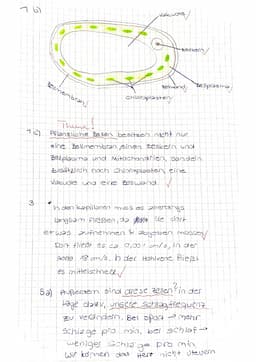 1 b)
Vakuole
Zellkern
Zellwand
Zellplasma
Zellmembran
Chloroplasten
Thema!
1c) Pflanzliche Zellen besitzen nicht nur
eine Zellmembran, einen Zellkern und
Zellplasma und Mitochondrien, sondern
zusätzlich noch Chloroplasten, eine
Vakuole und eine Zellwand.
3 In den Kapillaren muss es allerdings
langsam fließen, da sie dort
etwas aufnehmen & abgeben müssen
Dort fließt es ca 0,00 m/s, in der
Aorta m/s. In der Hohlvene fließt
es mittelschnell
5a) Außerdem sind diese Zellen? in der
Lage dazu, unsere Schlagfrequenz
zu verändern. Bei Sport → mehr
Schläge pro min, bei Schlaf →
weniger Schläge pro min
Wir können das Herz nicht steuern